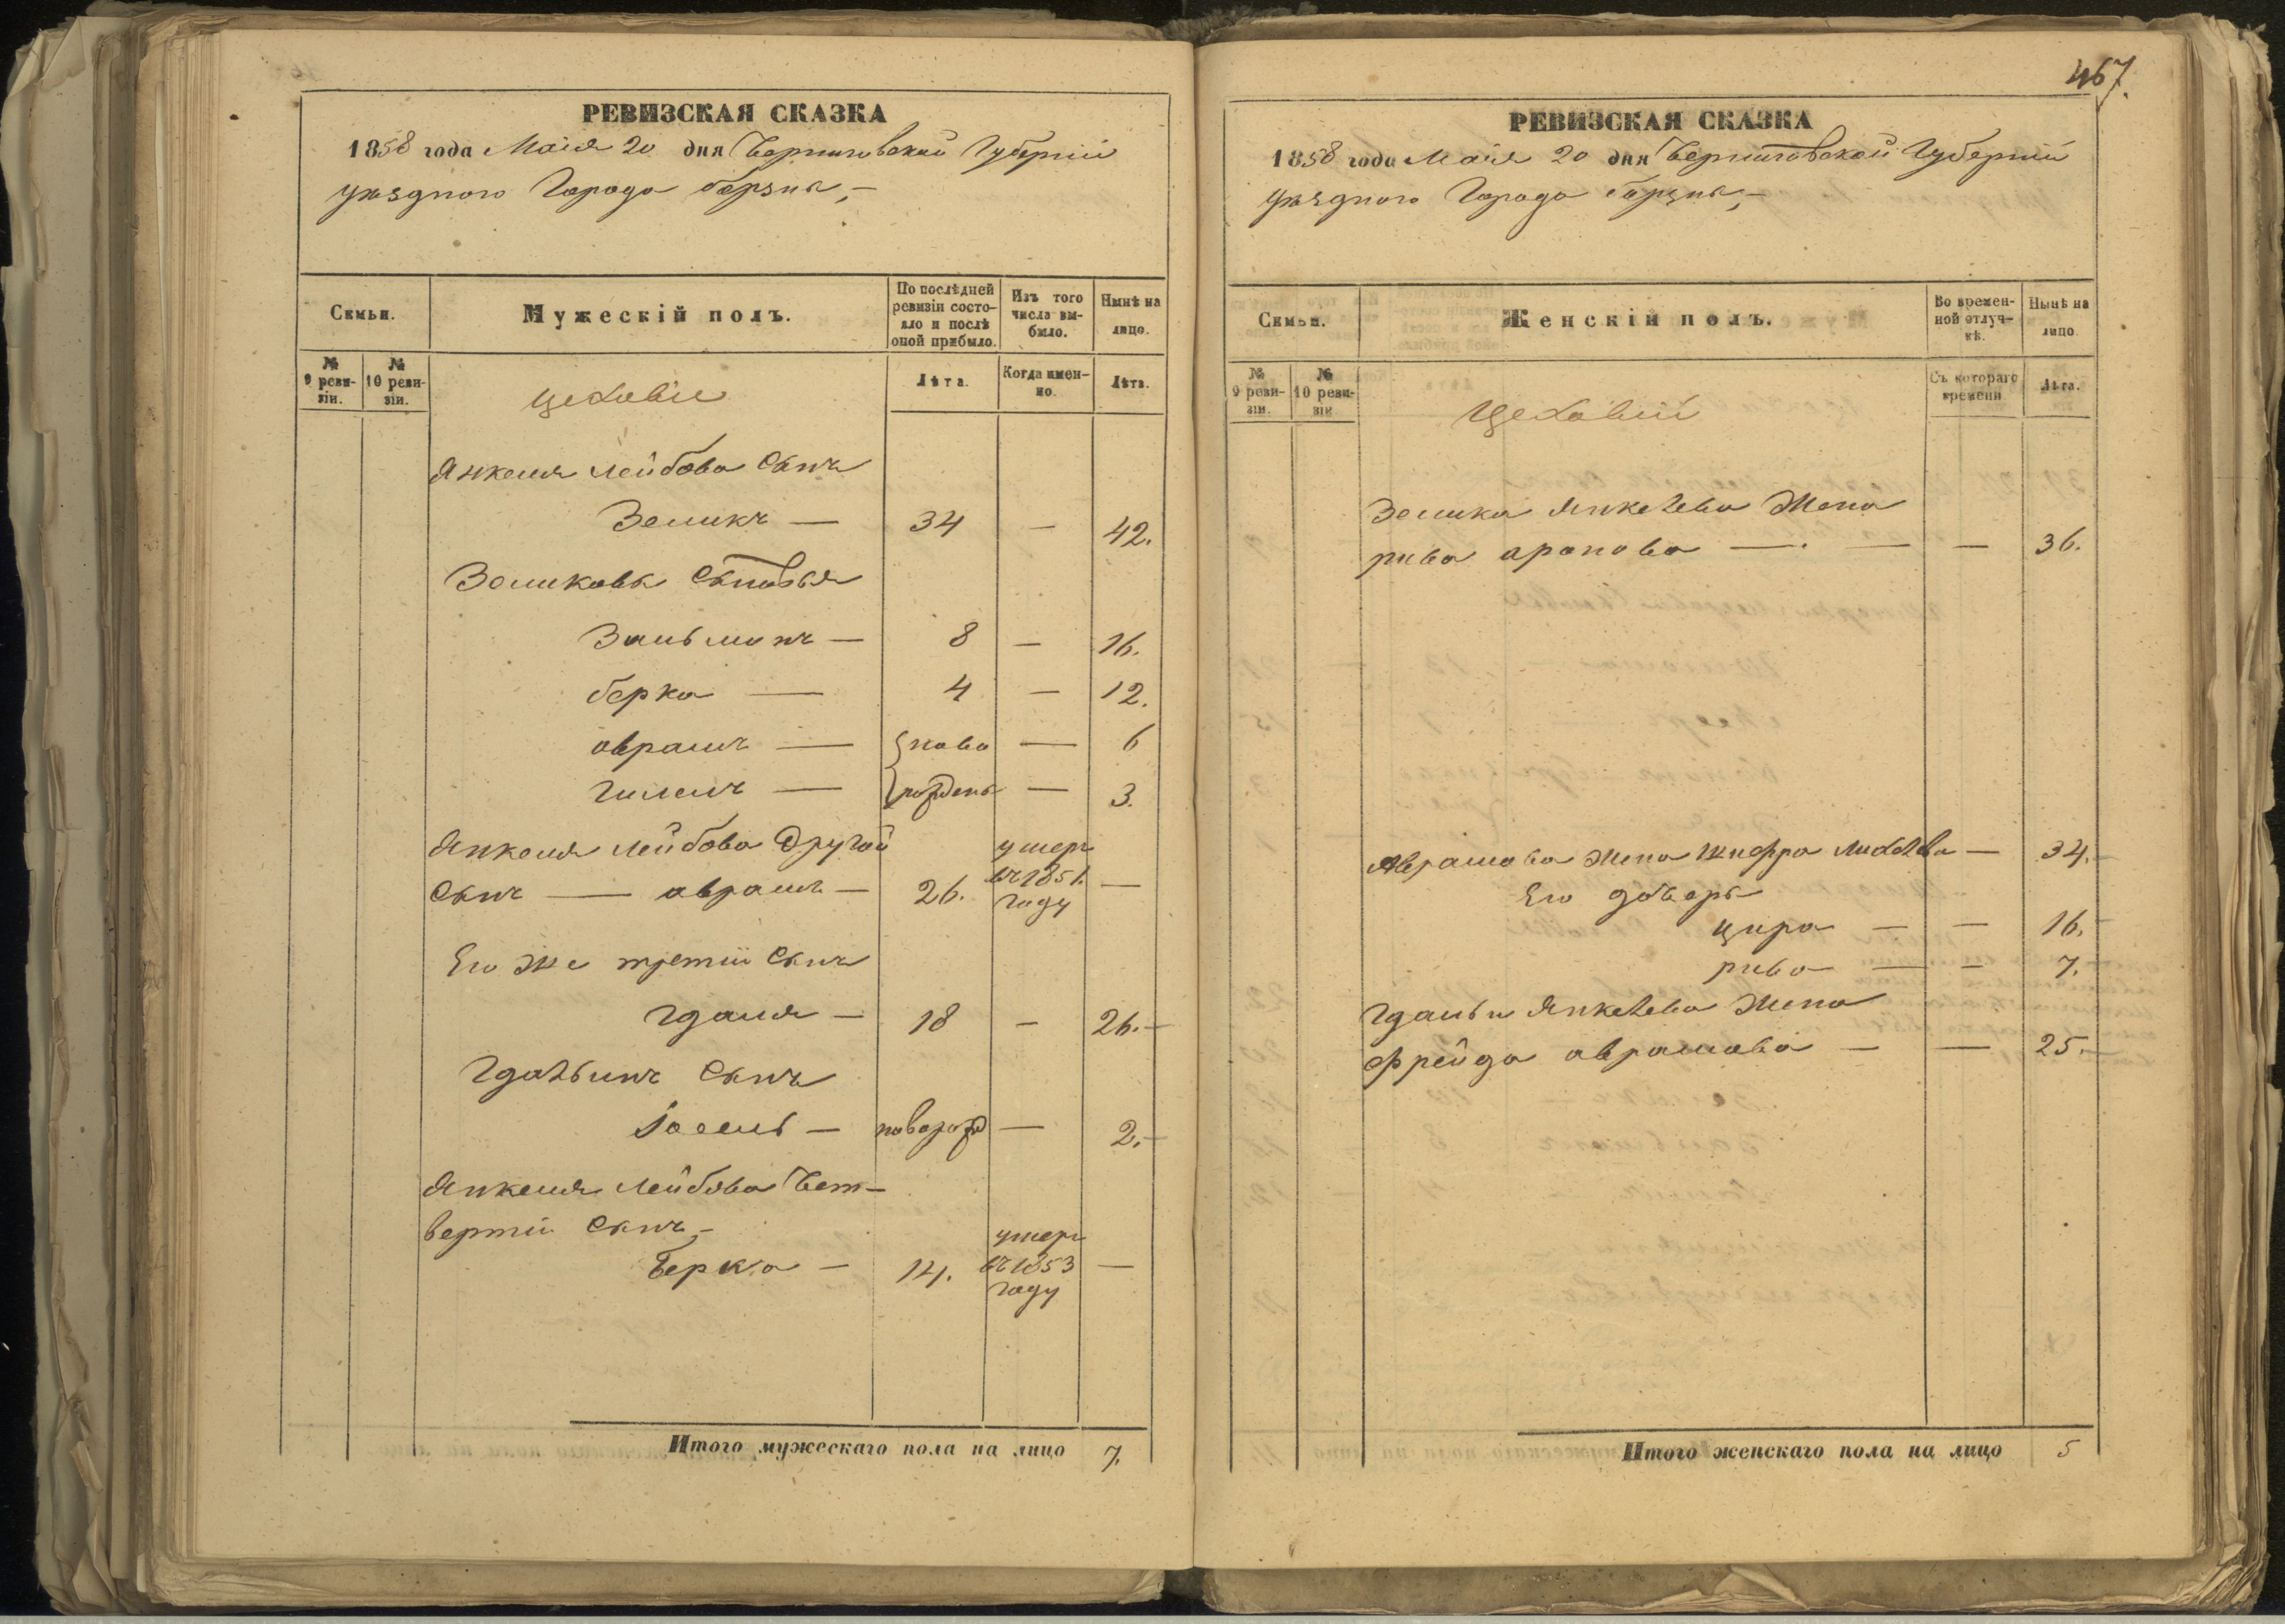 РЕВИЗСКАЯ СКАЗКА
1858 года Маія 20 дня Черниговской Губерніи
уѣзднаго Города борзны,—
Семьи.
Мужескій полъ.
По послѣдней ревизіи состояло и послѣ оной прибыло.
Изъ того числа выбыло.
Нынѣ на лицо.
№ 9 ревизіи.
№ 10 ревизіи.
Лѣта.
Когда именно.
Лѣта.
цеховіе
Янкеля Лейбова Сынъ
Зеликъ — 34 — 42.
Зеликовы Сыновья
Зальманъ — 8 — 16.
берка — 4 — 12.
аврамъ — ново — 6
Гилелъ — рожденъ — 3.
Янкеля Лейбова Другой
Сынъ — аврамъ — 26. умеръ въ 1851. году —
Его же третій Сынъ
Гдаля — 18 — 26.—
Гдальинъ Сынъ
Іосель —новорож — 2.—
Янкеля Лейбова Чет-
вертій Сынъ,—
Берка — 14. умеръ въ 1853 году —
Итого мужескаго пола на лицо 7.
467.
РЕВИЗСКАЯ СКАЗКА
1858 года Маія 20 дня Черниговской Губерніи
уѣзднаго Города борзны,—
Семьи.
Женскій полъ.
Во временной отлучкѣ.
Нынѣ на лицо.
№ 9 ревизіи.
№ 10 ревизіи
Съ котораго времени
Лѣта.
Цеховій
Зелика Янкелева Жена
рива аронова — — — 36.
Аврамова жена Шифра Михелева — 34.—
Его дочеры
цира — — 16.—
рива — — 7.
Гдальи Янкелева Жена
Фрейда аврамова — — 25.—
Итого женскаго пола на лицо 5